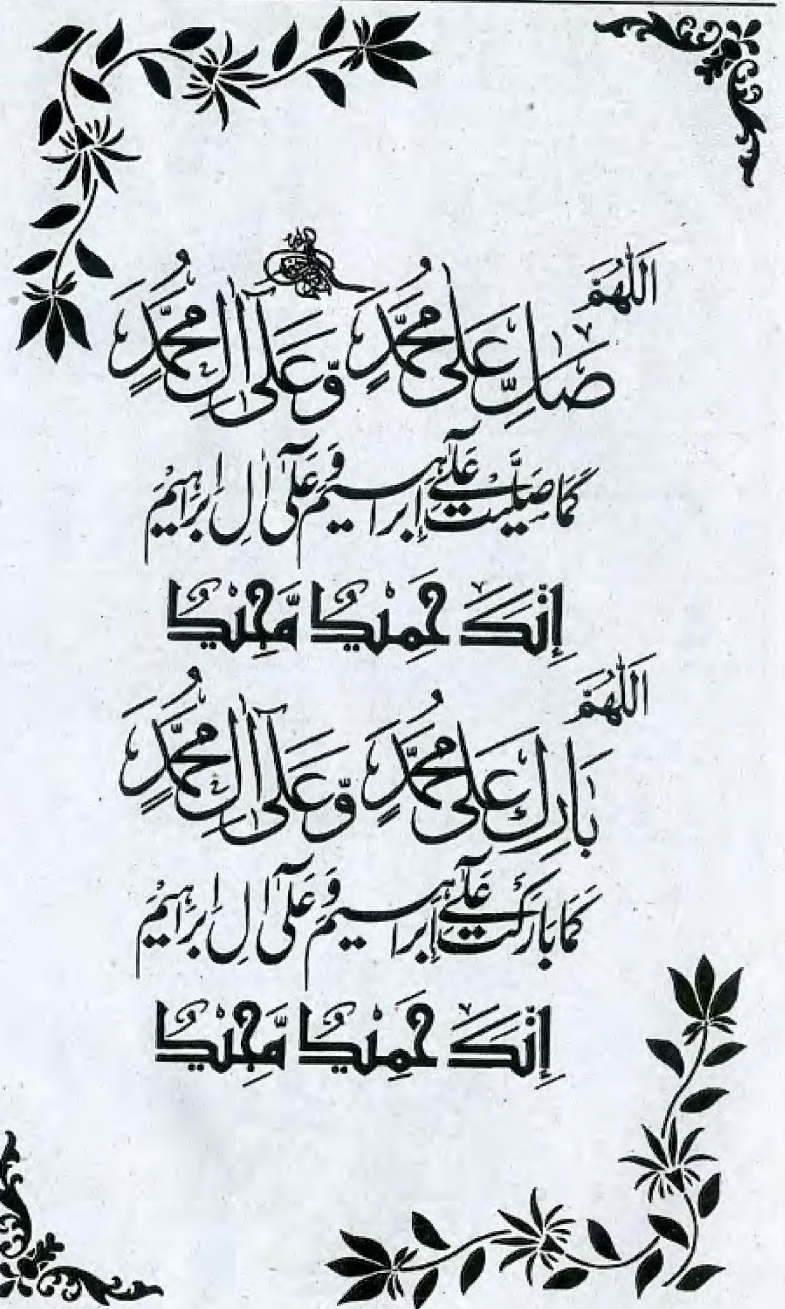 اَللّٰهُمَّ
صَلِّ عَلٰى مُحَمَّدٍ وَّعَلٰٓى اٰلِ مُحَمَّدٍ
كَمَا صَلَّيْتَ عَلٰٓى اِبْرَاهِيْمَ وَعَلٰٓى اٰلِ اِبْرَاهِيْمَ
اِنَّكَ حَمِيْدٌ مَّجِيْدٌ
اَللّٰهُمَّ
بَارِكْ عَلٰى مُحَمَّدٍ وَّعَلٰٓى اٰلِ مُحَمَّدٍ
كَمَا بَارَكْتَ عَلٰٓى اِبْرَاهِيْمَ وَعَلٰٓى اٰلِ اِبْرَاهِيْمَ
اِنَّكَ حَمِيْدٌ مَّجِيْدٌ